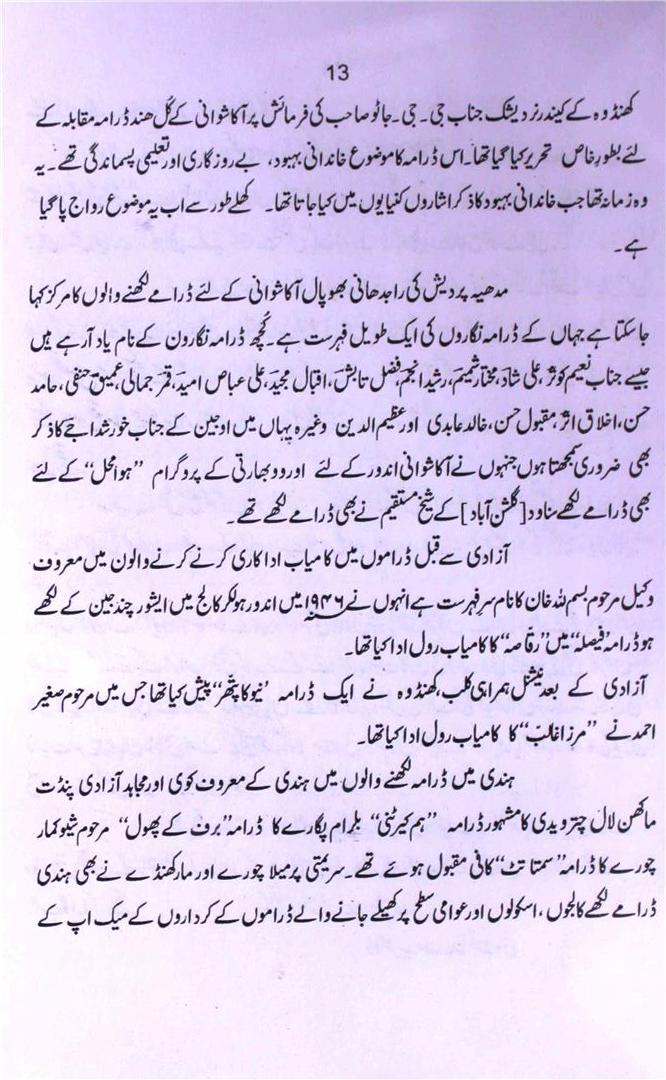 13
کھنڈوہ کے کیندر نردیشک جناب جی۔جی۔جاٹو صاحب کی فرمائش پر آکاشوانی کے کُل ھند ڈرامہ مقابلہ کے
لئے بطورِ خاص تحریر کیا گیا تھا۔ اس ڈرامہ کا موضوع خاندانی بہبود، بے روزگاری اور تعلیمی پسماندگی تھے۔ یہ
وہ زمانہ تھا جب خاندانی بہبود کا ذکر اشاروں کنایوں میں کیا جاتا تھا۔ کھلے طور سے اب یہ موضوع رواج پا گیا
ہے۔
مدھیہ پردیش کی راجدھانی بھوپال آکاشوانی کے لئے ڈرامے لکھنے والوں کا مرکز کہا
جا سکتا ہے جہاں کے ڈرامہ نگاروں کی ایک طویل فہرست ہے۔ کُچھ ڈرامہ نگارون کے نام یاد آ رہے ہیں
جیسے جناب نعیم کوثر، علی شاد، مختار شمیم، رشید انجم، فضل تابش، اقبال مجید، علی عباص امید، قمر جمالی، عمیق حنفی، حامد
حسن، اخلاق اثر، مقبول حسن، خالد عابدی اور عظیم الدین وغیرہ یہاں میں اوجین کے جناب خورشداجے کا ذکر
بھی ضروری سمجھتا ہوں جنہوں نے آکاشوانی اندور کے لئے اور وودبھارتی کے پروگرام ”ہوا محل“ کے لئے
بھی ڈرامے لکھے مناود [گلشن آباد] کے شیخ مستقیم نے بھی ڈرامے لکھے تھے۔
آزادی سے قبل ڈراموں میں کامیاب اداکاری کرنے کرنے والون میں معروف
وکیل مرحوم بسم اللہ خان کا نام سرِ فہرست ہے انہوں نے ۱۹۴۶ میں اندور ہولکر کالج میں ایشور چند جین کے لکھے
ہو ڈرامہ ”فیصلہ“ میں ”رقاصہ“ کا کامیاب رول ادا کیا تھا۔
آزادی کے بعد نیشنل ہمراہی کلب، کھنڈوہ نے ایک ڈرامہ ’نیو کا پتھّر‘ پیش کیا تھا جس میں مرحوم صغیر
احمد نے ”مرزا غالب“ کا کامیاب رول ادا کیا تھا۔
ہندی میں ڈرامہ لکھنے والوں میں ہندی کے معروف کوی اور مجاہد آزادی پنڈت
ماکھن لال چترویدی کا مشہور ڈرامہ ”ہم کیرٹنی“ بلرام پگارے کا ڈرامہ ”برف کے پھول“ مرحوم شیو کمار
چورے کا ڈرامہ ”سمتا تٹ“ کافی مقبول ہوئے تھے۔ سریمتی پرمیلا چورے اور مارکھنڈے نے بھی ہندی
ڈرامے لکھے کالجوں، اسکولوں اور عوامی سطح پر کھیلے جانے والے ڈراموں کے کرداروں کے میک اپ کے